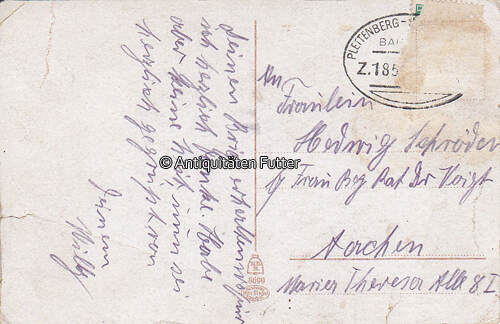 Deinen Brief erhalten wofür
ich herzlich danke. Habe
aber keine Zeit, nun sei
herzlich gegrüßt von
Deinem
Willy
PLETTENBERG-
BA
Z.185
An
Fräulein
Hedwig Schröder
b/ Frau Reg Rat Dr Voigt
Aachen
Marien Theresa Alle 8 I
8699
© Antiquitäten Futter